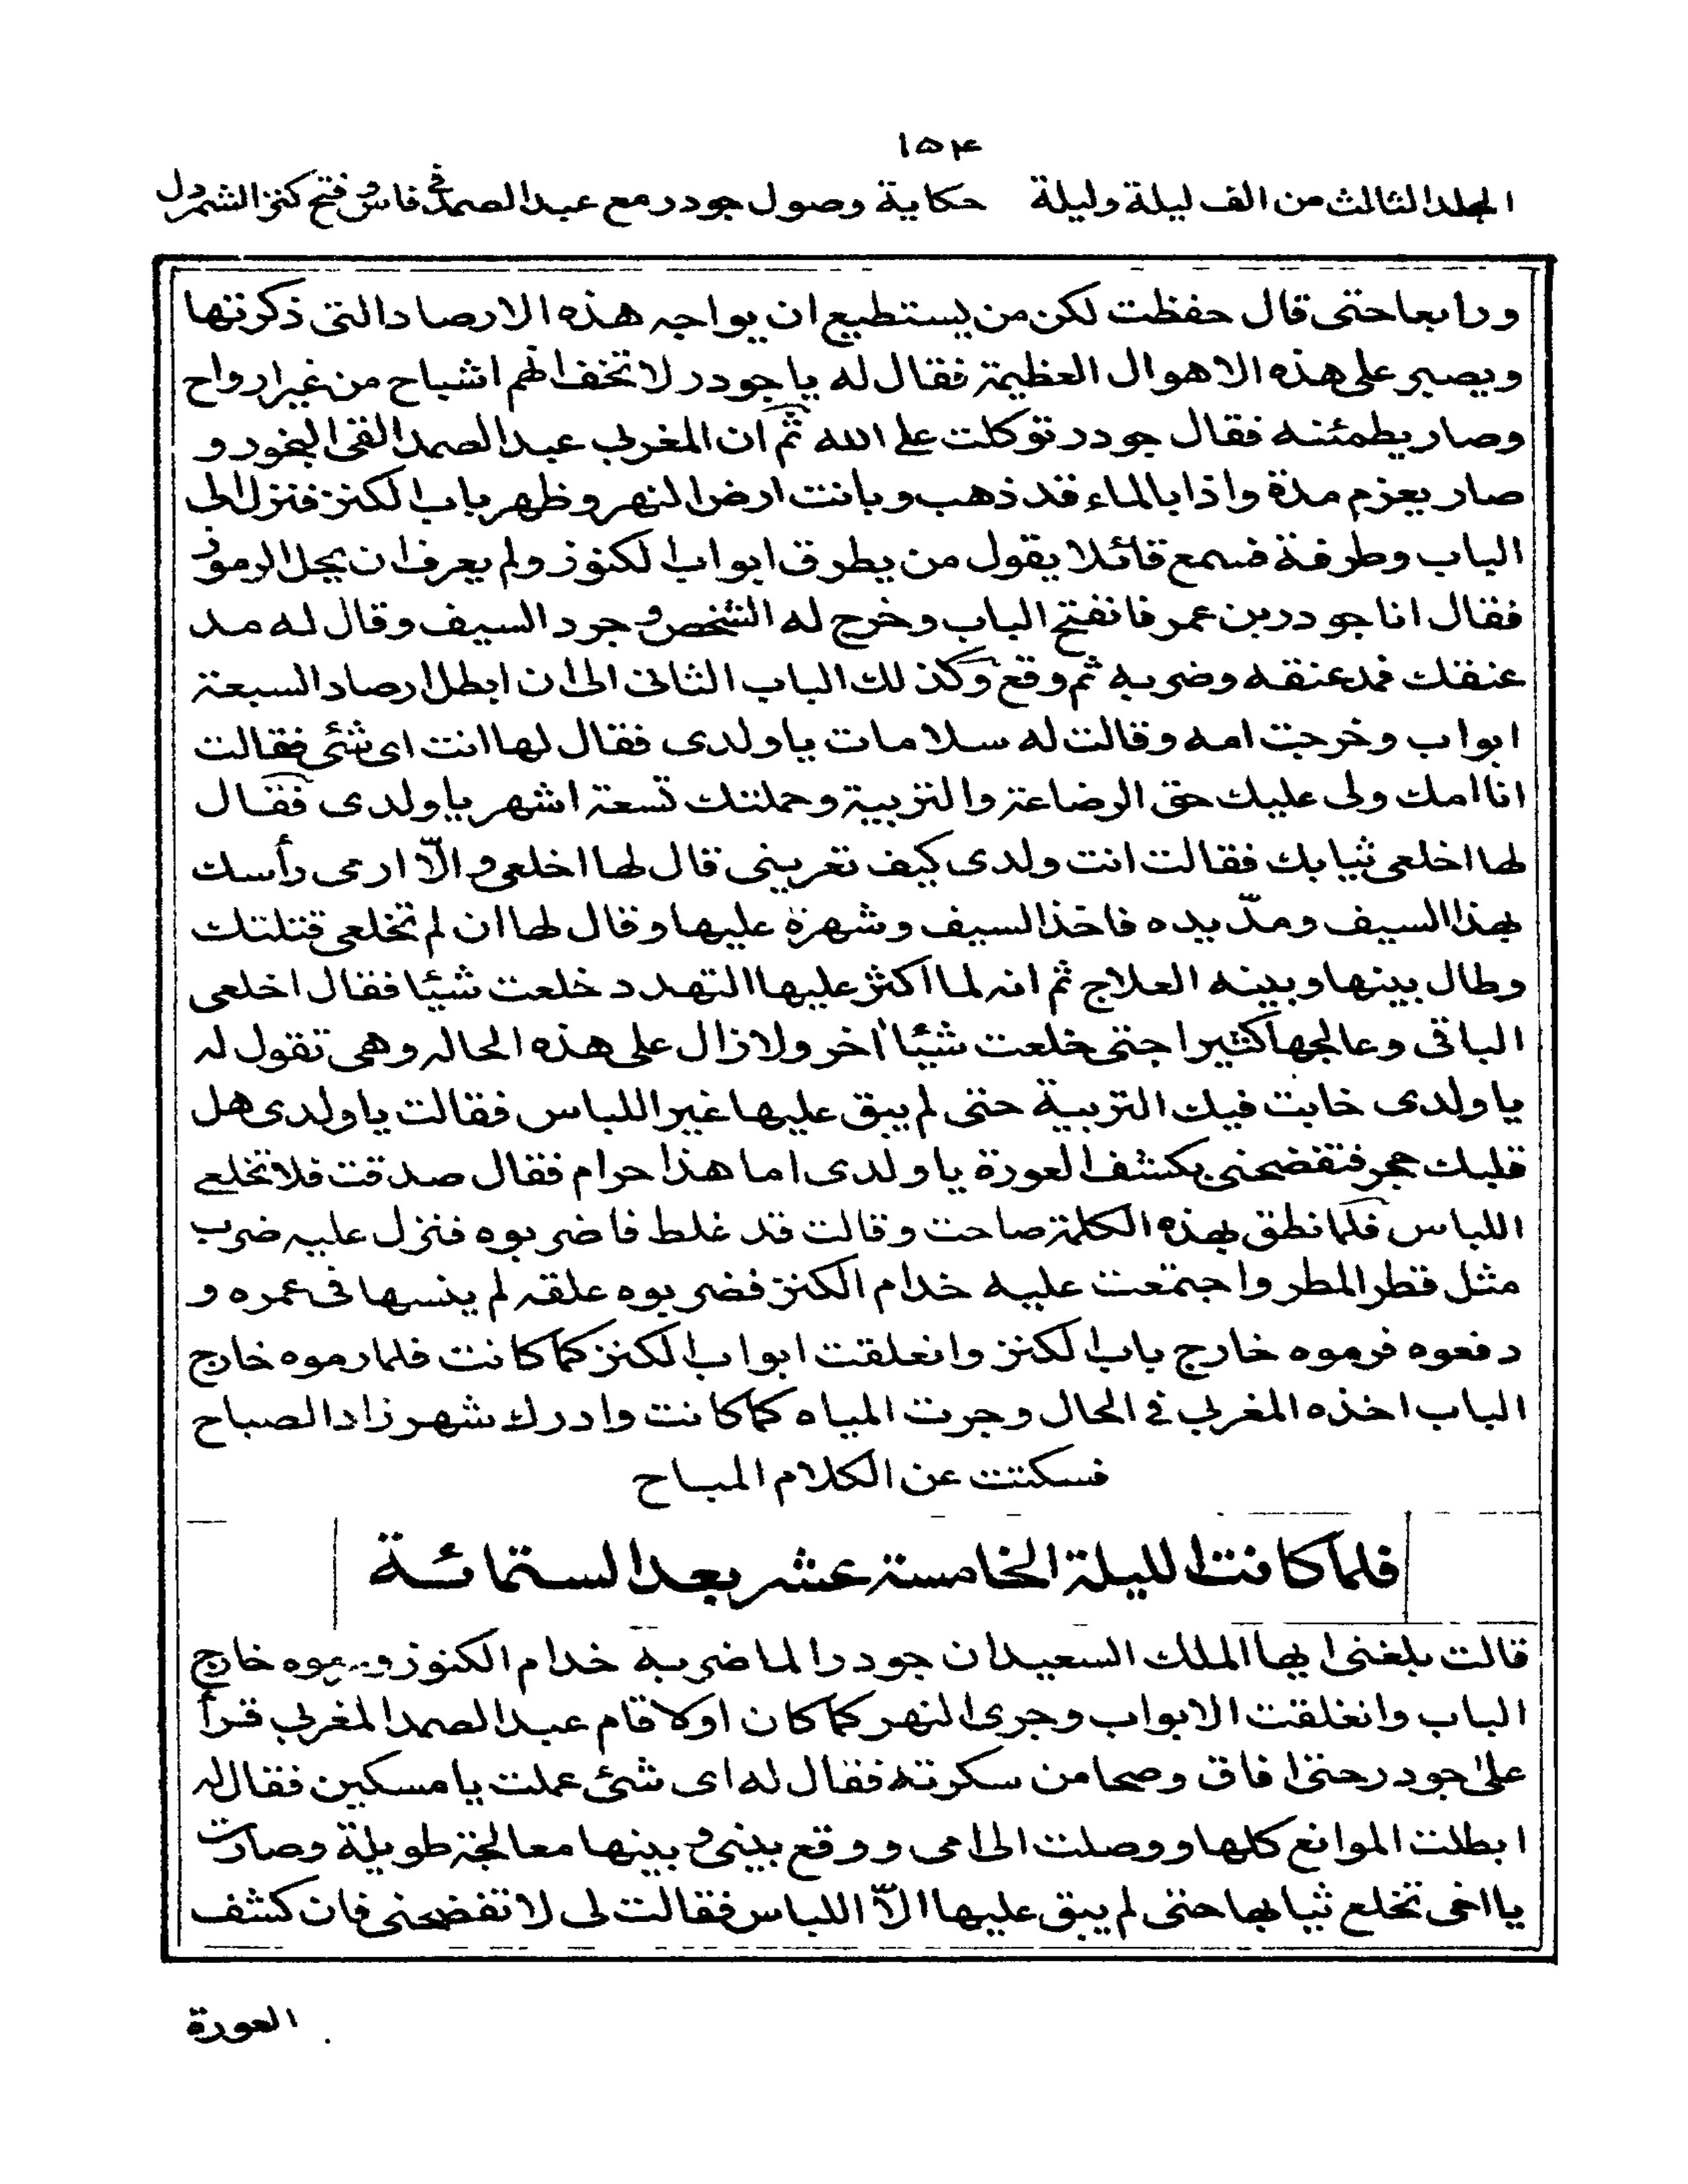 ١٥۴
المجلد الثالث من الف ليلة وليلة حكاية وصول جودر مع عبد الصمد فى فاس وفتح كنز الشمردل
ورابعا حتى قال حفظت لكن من يستطيع ان يواجه هذه الارصاد التى ذكرتها
ويصبر على هذه الاهوال العظيمة فقال له يا جودر لا تخف انهم اشباح من غير ارواح
وصار يطمئنه فقال جودر توكلت على الله ثم ان المغربى عبد الصمد القى البخور و
صار يعزم مدة واذا بالماء قد ذهب وبانت ارض النهر وظهر باب الكنز فنزل الى
الباب وطرفة فسمع قائلا يقول من يطرق ابواب الكنوز ولم يعرف ان يحل الرموز
فقال انا جودر بن عمر فانفتح الباب وخرج له الشخص وجرد السيف وقال له مد
عنقك فمد عنقه وضربه ثم وقع وكذلك الباب الثانى الى ان ابطل ارصاد السبعة
ابواب وخرجت امه وقالت له سلامات يا ولدى فقال لها انت اى شئ فقالت
انا امك ولى عليك حق الرضاعة والتربية وحملتك تسعة اشهر يا ولدى فقال
لها اخلعى ثيابك فقالت انت ولدى كيف تعرينى قال لها اخلعى والّا ارمى رأسك
بهذا السيف ومدّ يده فاخذ السيف وشهرة عليها وقال لها ان لم تخلعى قتلتك
وطال بينها وبينه العلاج ثم انه لما اكثر عليها التهدد خلعت شيئا فقال اخلعى
الباقى وعالجها كثيرا حتى خلعت شيئا اخر ولا زال على هذه الحاله وهى تقول له
يا ولدى خابت فيك التربية حتى لم يبق عليها غير اللباس فقالت يا ولدى هل
قلبك حجر فتفضحنى بكشف العورة يا ولدى اما هذا حرام فقال صدقت فلا تخلعى
اللباس فلما نطق بهذه الكلمة صاحت وقالت قد غلط فاضربوه فنزل عليه ضرب
مثل قطر المطر واجتمعت عليه خدام الكنز فضربوه علقه لم ينسها فى عمره و
دفعوه فرموه خارج باب الكنز وانغلقت ابواب الكنز كما كانت فلما رموه خارج
الباب اخذه المغربى فى الحال وجرت المياه كما كانت وادرك شهرزاد الصباح
فسكتت عن الكلام المباح
فلما كانت الليلة الخامسة عشر بعد الستمائة
قالت بلغنى ايها الملك السعيد ان جودرا لما ضربه خدام الكنوز ورموه خارج
الباب وانغلقت الابواب وجرى النهر كما كان اولا قام عبد الصمد المغربى قرأ
على جودر حتى افاق وصحا من سكرته فقال له اى شئ عملت يا مسكين فقال له
ابطلت الموانع كلها ووصلت الى امى ووقع بينى وبينها معالجة طويلة وصارت
يا اخى تخلع ثيابها حتى لم يبق عليها الّا اللباس فقالت لى لا تفضحنى فان كشف
العورة